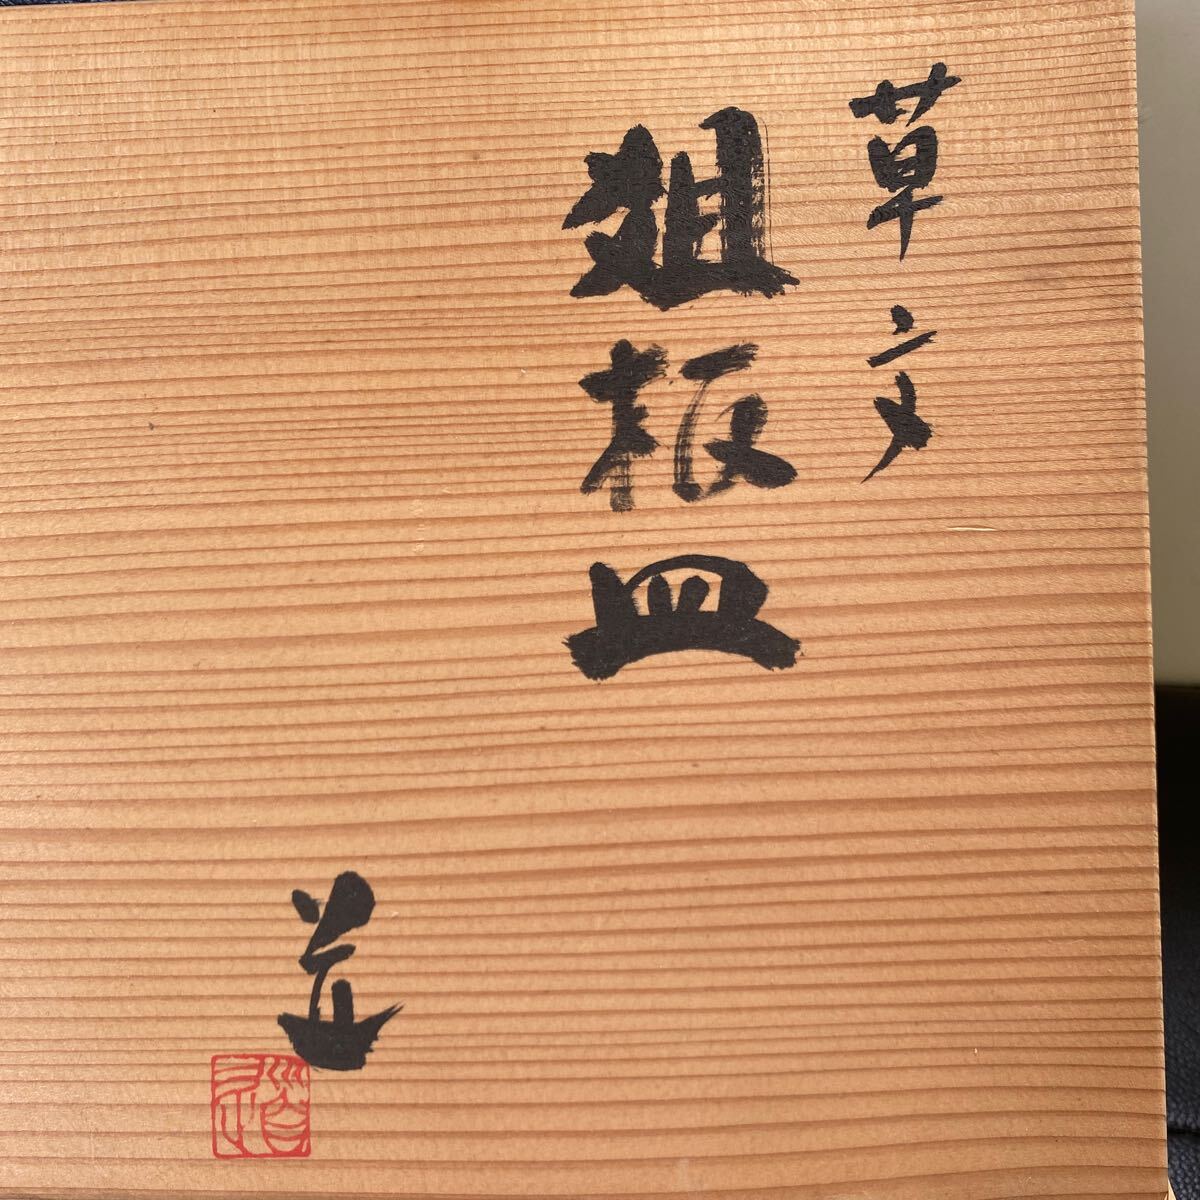 草文
俎板皿